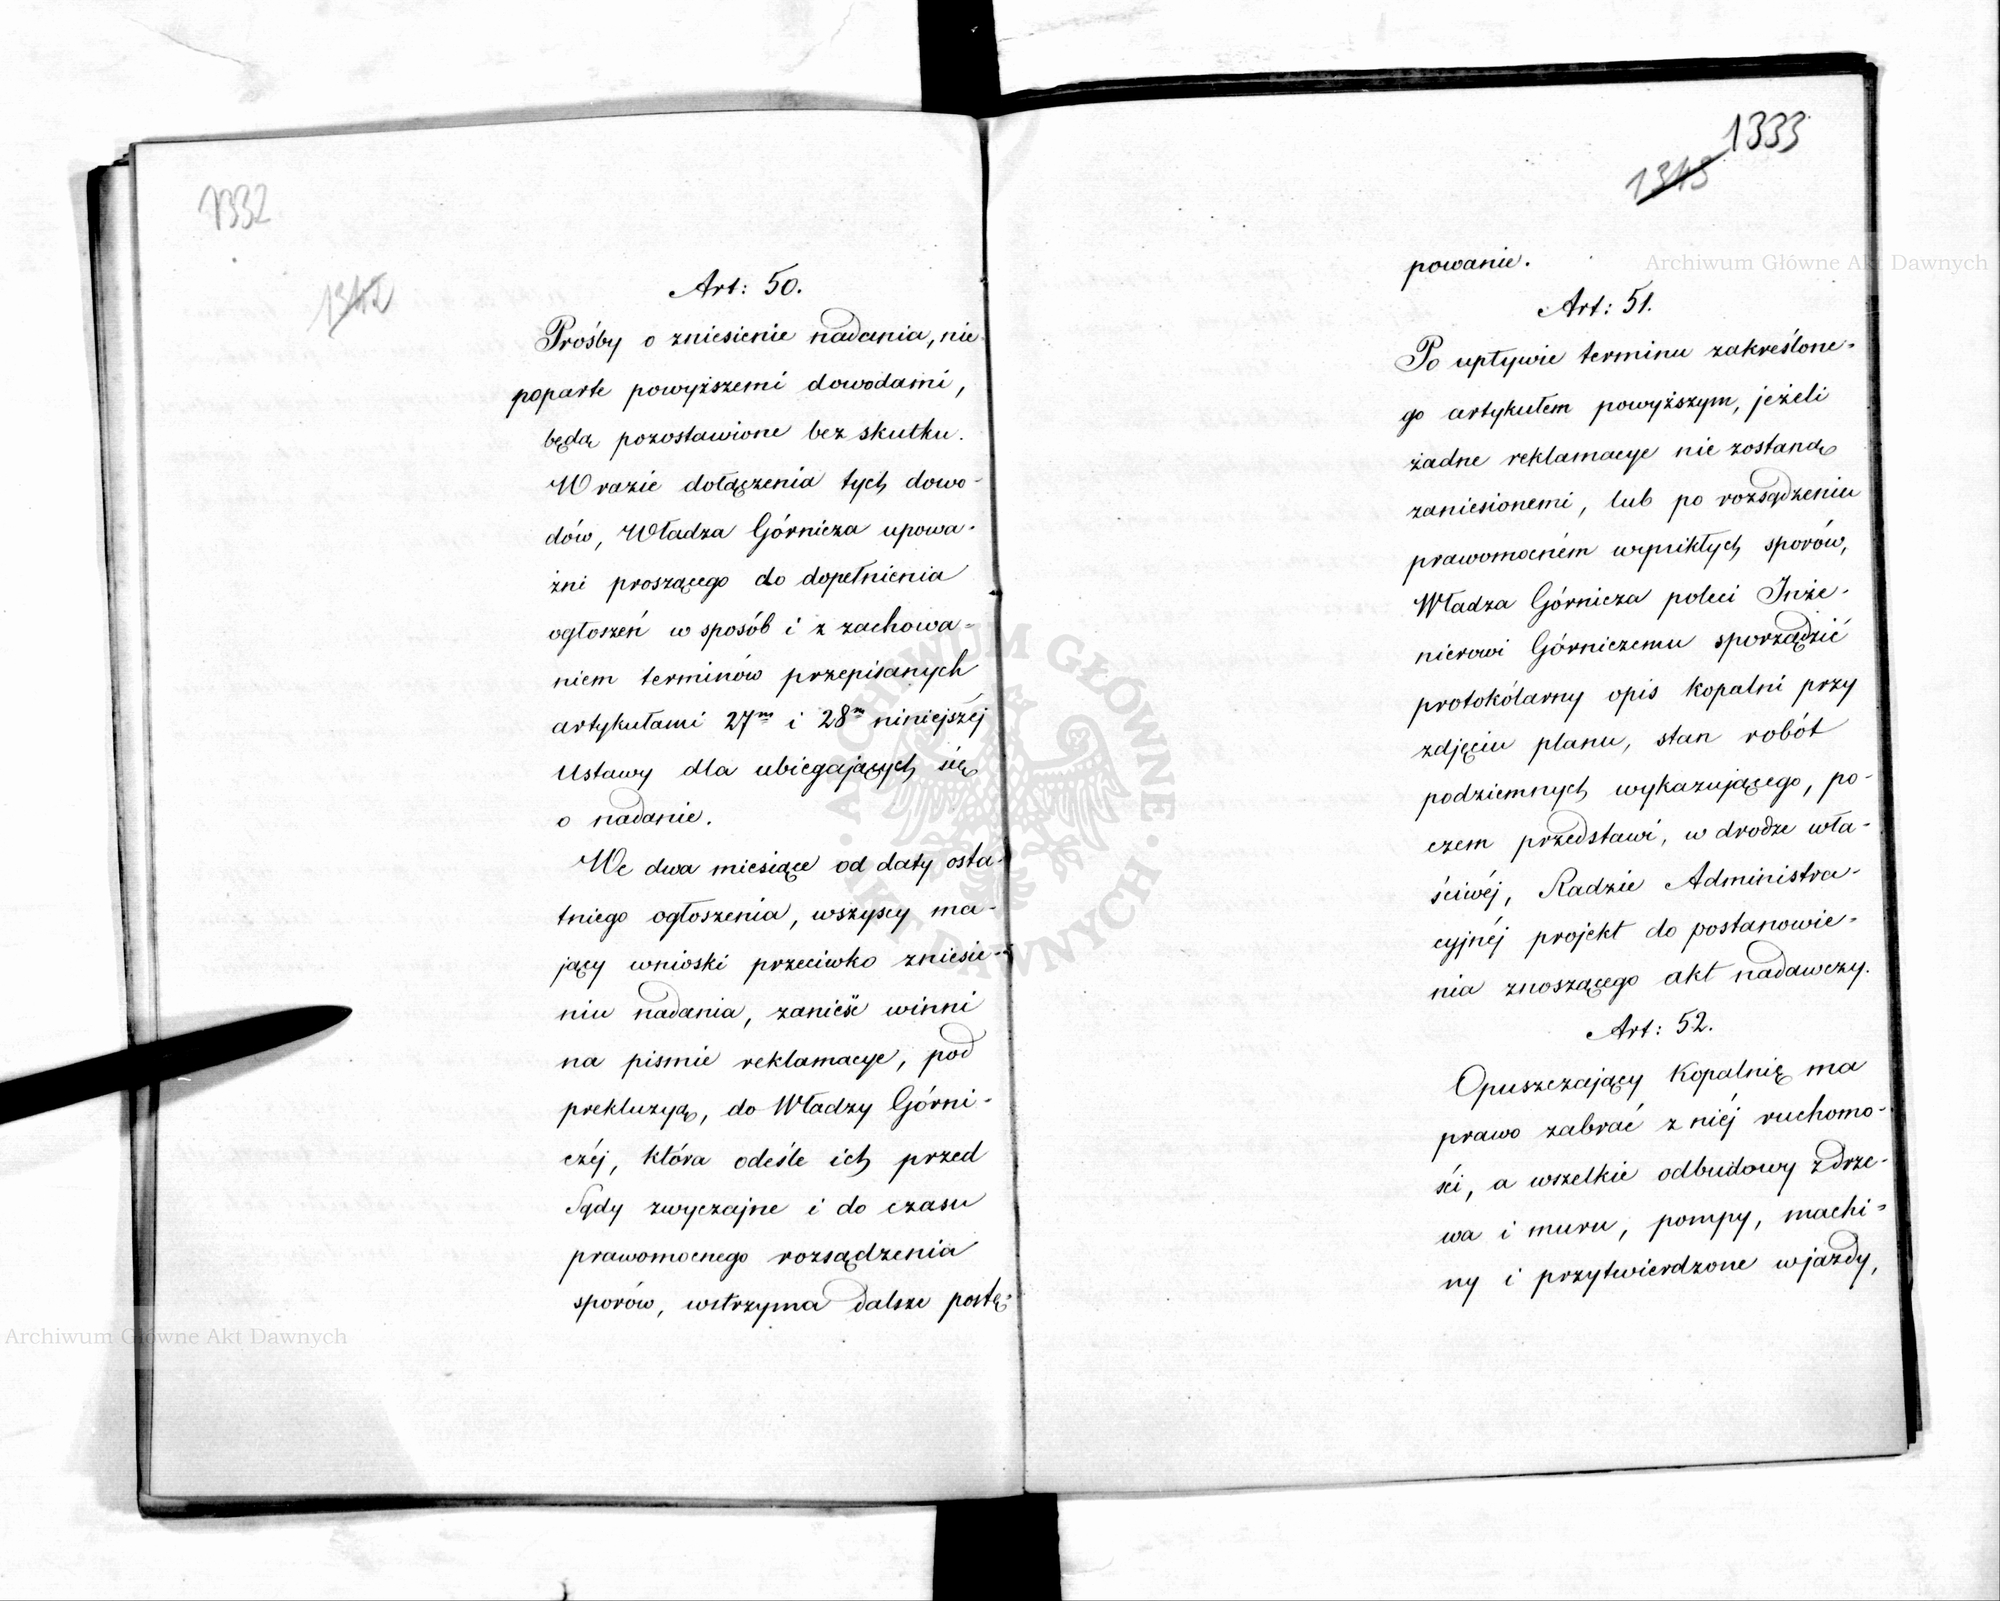 1332
1342
Art: 50.
Prośby o zniesienie nadania, nie
poparte powyższemi dowodami,
będą pozostawione bez skutku.
W razie dołączenia tych dowo-
dów, Władza Górnicza upowa-
żni proszącego do dopełnienia
ogłoszeń w sposób i z zachowa-
niem terminów przepisanych
artykułami 27m i 28m niniejszéj
Ustawy dla ubiegających się
o nadanie.
We dwa miesiące od daty osta-
tniego ogłoszenia, wszyscy ma-
jący wnioski przeciwko zniesie-
niu nadania, zanieść winni
na pismie reklamacye, pod
prekluzyą, do Władzy Górni-
czéj, która odeśle ich przed
Sądy zwyczajne i do czasu
prawomocnego rozsądzenia
sporów, wstrzyma dalsze postę-
1333
1343
powanie.
Art: 51.
Po upływie terminu zakreślone-
go artykułem powyższym, jeżeli
żadne reklamacye nie zostaną
zaniesionemi, lub po rozsądzeniu
prawomocném wynikłych sporów,
Władza Górnicza poleci Inże-
nierowi Górniczemu sporządzić
protokólarny opis kopalni przy
zdjęciu planu, stan robót
podziemnych wykazującego, po-
czem przedstawi, w drodze wła-
ściwéj, Radzie Administra-
cyjnéj projekt do postanowie-
nia znoszącego akt nadawczy.
Art: 52.
Opuszczający Kopalnię ma
prawo zabrać z niéj ruchomo-
ści, a wszelkie odbudowy z drze-
wa i muru, pompy, machi-
ny i przytwierdzone wjazdy,
Archiwum Główne Akt Dawnych
Archiwum Główne Akt Dawnych
ARCHIWUM GŁÓWNE AKT DAWNYCH